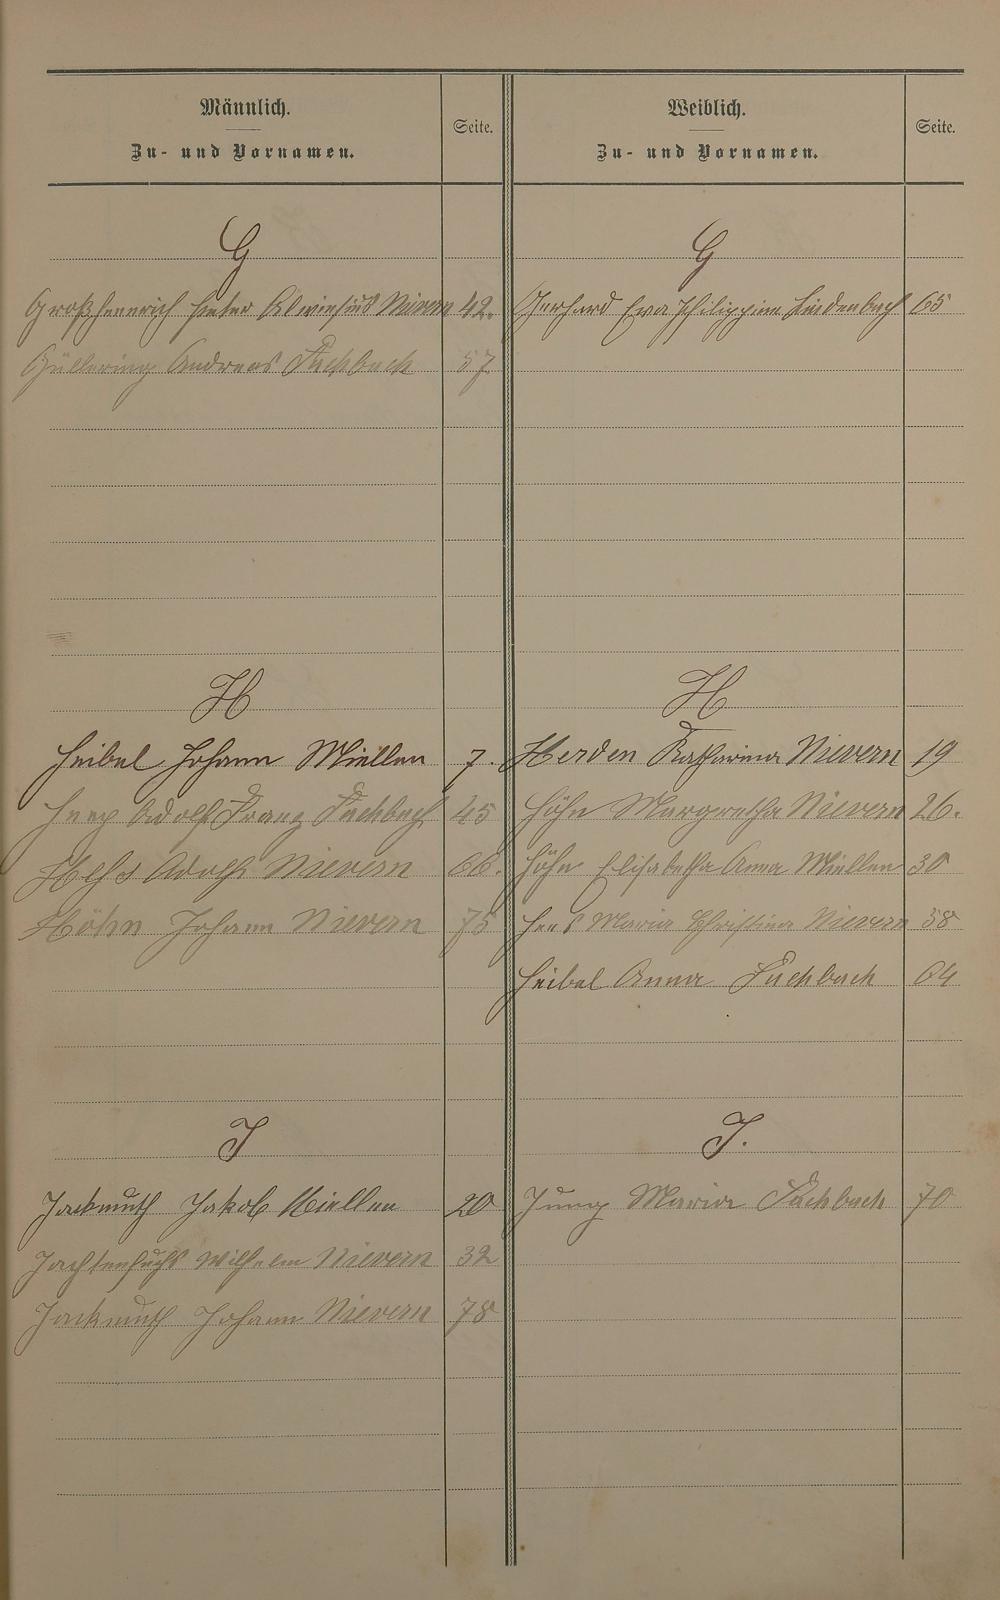 Männlich.
Zu- und Vornamen.
Seite.
Weiblich.
Zu- und Vornamen.
Seite.
G
G
Großhennrich Peter Nievern 42.
Gerhard Eva Philippine Lindenbach 65
Güllering Andreas Fachbach 57
H
H
Heibel Johann Miellen 7.
Herden Katharina Nievern 19
Adolf Franz Fachbach 45
Höhn Margretha Nievern 26.
Adolf Nievern 66.
Höhn Elisabetha Anna Miellen 30
Höhn Johann Nievern 75
Hees Maria Christina Nievern 58
Heibel Anna Fachbach 64
J
J.
Jackmuth Jakob Miellen 20
Jung Maria Fachbach 70
Jachtenfuchs Wilhelm Nievern 32
Jackmuth Johann Nievern 78